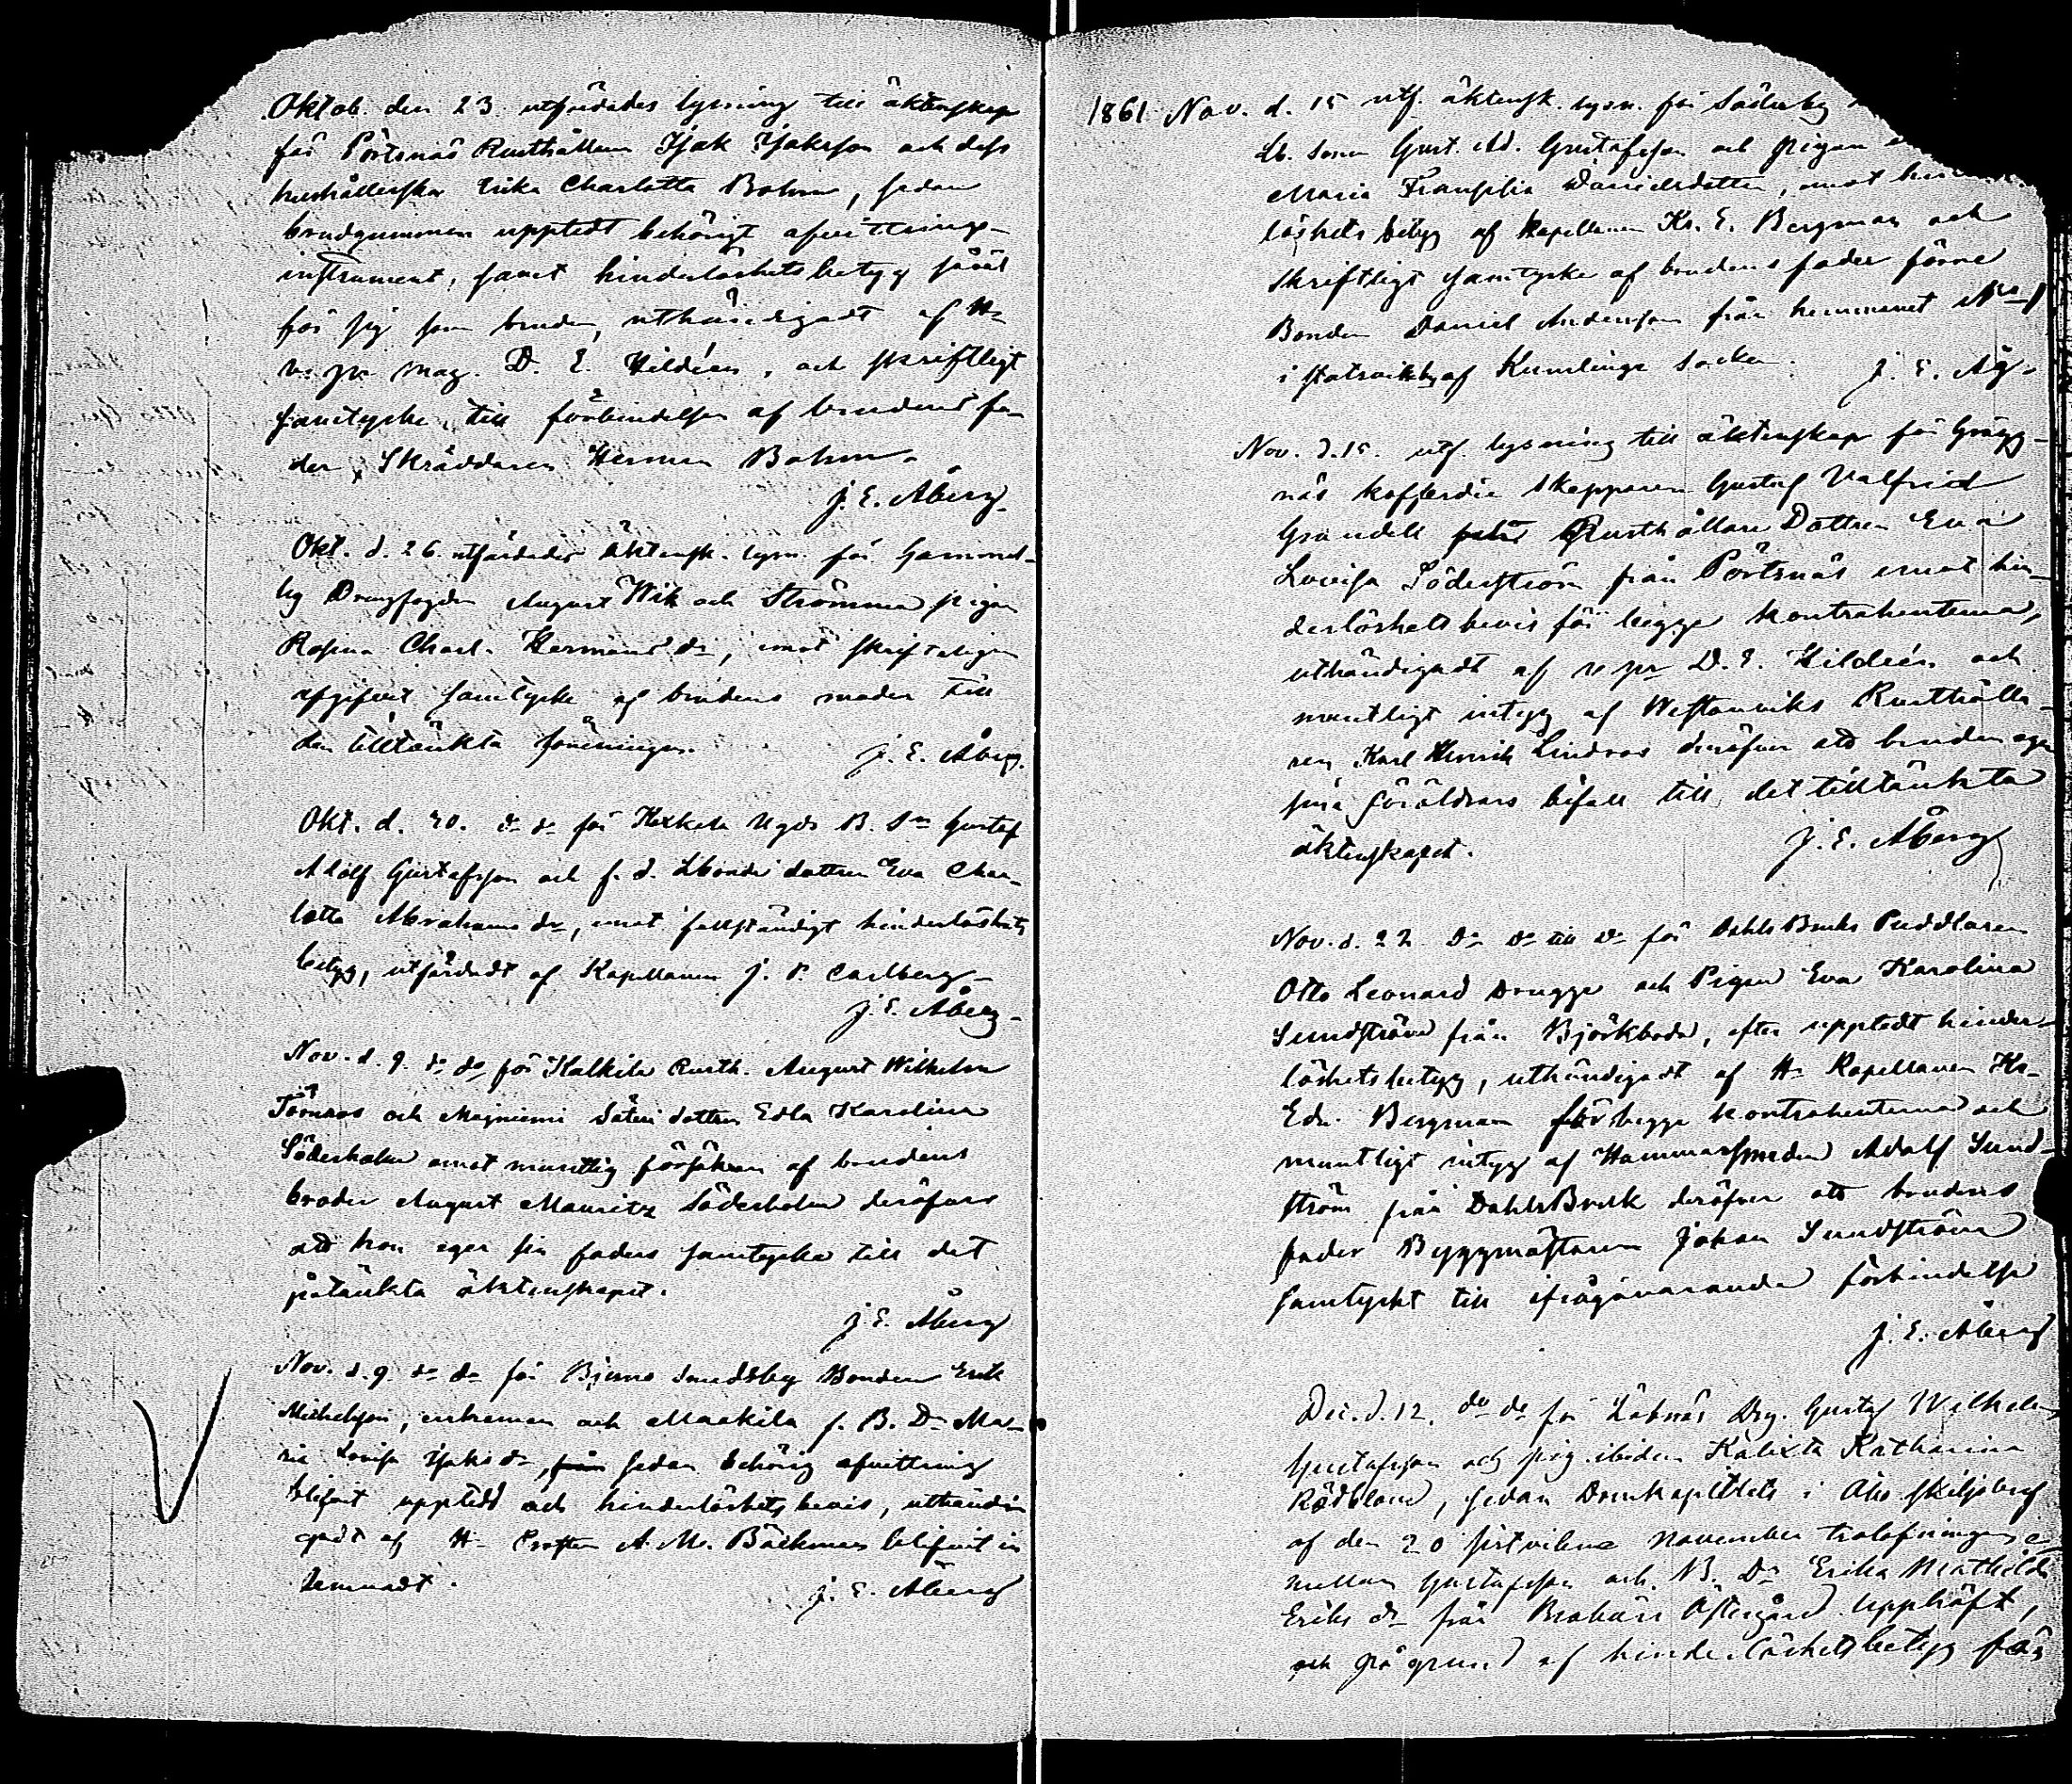 Oktob. den 23. utfärdades lysning till äktenskap
för Pörtsnäs Rusthållaren Isak Isaksson och dess
hushållerska Erika Charlotta Bohm, sedan
brudgummen upptedt behörigt afvittrings-
instrument, samt hinderlöshetsbetyg såväl
för sig som bruden, uthändigadt af Hr
v. pr mag. D. E. Hildéen, och skriftligt
samtycke till förbindelsen af brudens fa-
der, Skräddaren Herman Bohm.
J. E. Åberg.
Okt. d. 26. utfärdades äktensk. lysn. för Gammel-
by Drengfogden August Wik och Strömma pigan
Rosina Charl. Hermansdr, emot skrifteligen
afgifvet samtycke af brudens moder till
den tilltänkta föreningen.
J. E. Åberg.
Okt. d. 30. do do för Kexkela Nygds B. Sn Gustaf
Adolf Gustafsson och f. d. Lbonde dottren Eva Char-
lotta Abrahamsdr, emot fullständigt hinderlöshets
betyg, utfärdadt af Kapellanen J. P. Carlberg.
J. E. Åberg.
Nov. d. 9. do do för Kalkila Rusth. August Wilhelm
Törnroos och Majniemi Säteri dottren Edla Karolina
Söderholm emot muntlig försäkran af brudens
broder August Mauritz Söderholm deröfver
att hon eger sin faders samtycke till det
påtänkta äktenskapet.
J. E. Åberg
Nov. d. 9. do do för Bjerno Smedsby Bonden Erik
Michelsson, enkeman och Maakila f. B. Dr Ma-
ria Lovisa Isaksdr, sedan behörig afvittring
blifvit uppted och hinderlöshets bevis, uthändi-
gadt af Hr Prosten A. M. Bäckman blifvit in
lemnadt.
J. E. Åberg
1861. Nov. d. 15 utf. äktensk. lysn. för Söderby
Lb. Sonen Gust. Ad. Gustafsson och pigan
Maria Fransilia Danielsdotter, emot hin
löshets betyg af Kapellanen Kr. E. Bergman och
skriftligt samtycke af brudens fader förre
Bonden Daniel Andersson från hemmanet No 1
i af Kumlinge socken.
J. E. Åg.
Nov. d. 15. utf. lysning till äktenskap för Grägg-
näs kofferdie skepparen Gustaf Valfrid
Grandell Rusthållare Dottren Eva
Lovisa Söderström från Pörtsnäs emot hin-
derlöshets bevis för begge kontrahenterna,
uthändigadt af v pr D. E. Hildéen och
muntligt intyg af Westanviks Rusthålla-
ren Karl Henrik Lindroos deröfver att bruden eger
sina föräldrars bifall till det tilltänkta
äktenskapet.
J. E. Åberg
Nov. d. 22. do do till do för Dahls Bruks Puddlaren
Otto Leonard Drugge och Pigan Eva Karolina
Sundström från Björkboda, efter upptedt hinder-
löshetsbetyg, uthändigadt af Hr Kapellanen Kr.
Edv. Bergman för begge kontrahenterna och
muntligt intyg af Hammarsmeden Adolf Sund-
ström från Dahls Bruk deröfver att brudens
fader Byggmästaren Johan Sundström
samtyckt till ifrågavarande förbindelse
J. E. Åberg
Dec. d. 12. do do för Labnäs Drg. Gustaf Wilhelm
Gustafsson och pig. ibidem Kalixta Katharina
Rödblom, sedan Domkapitlets i Åbo skiljobref
af den 20 sistvikne November trolofningen e-
mellan Gustafsson och B. Dr Erika Mathilda
Eriksdr från Brokärr Östergård upphäft,
och på grund af hinderlöshetsbetyg för